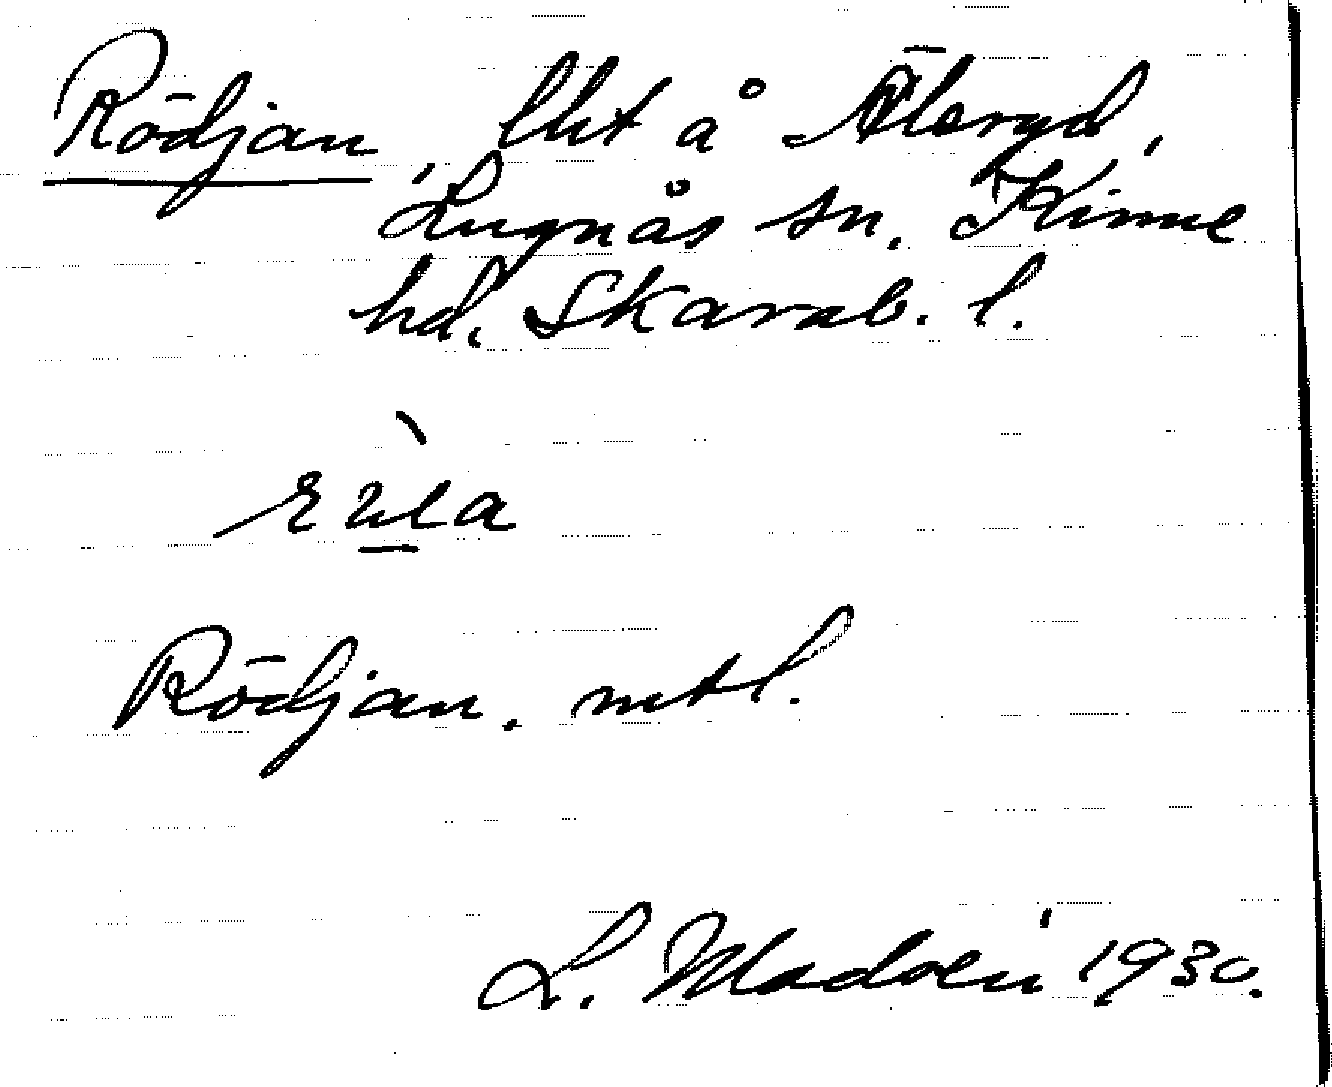 Rödjan, lht å Älsryd,
Lugnås sn. Kinne
hd. Skarab. l.
Rödjan. mtl.
L. Madsén 1930.